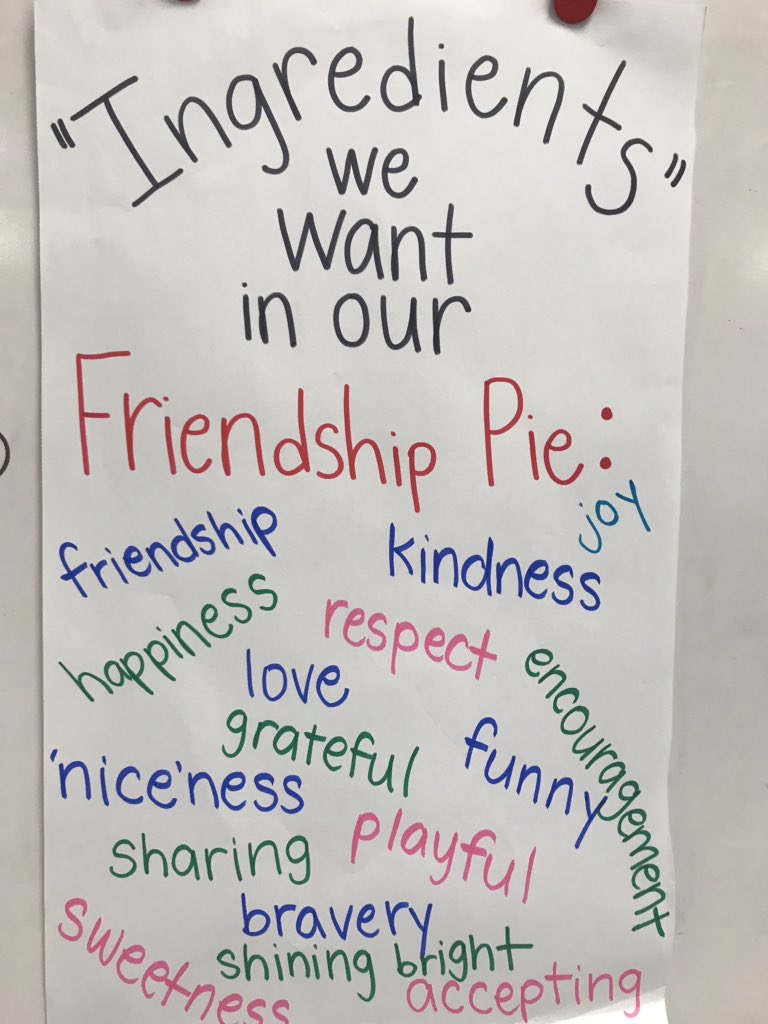 "Ingredients"
we
want
in our
Friendship Pie:
joy
friendship
kindness
happiness
respect
love
encouragement
grateful
funny
'nice'ness
playful
sharing
bravery
sweetness
shining bright
accepting